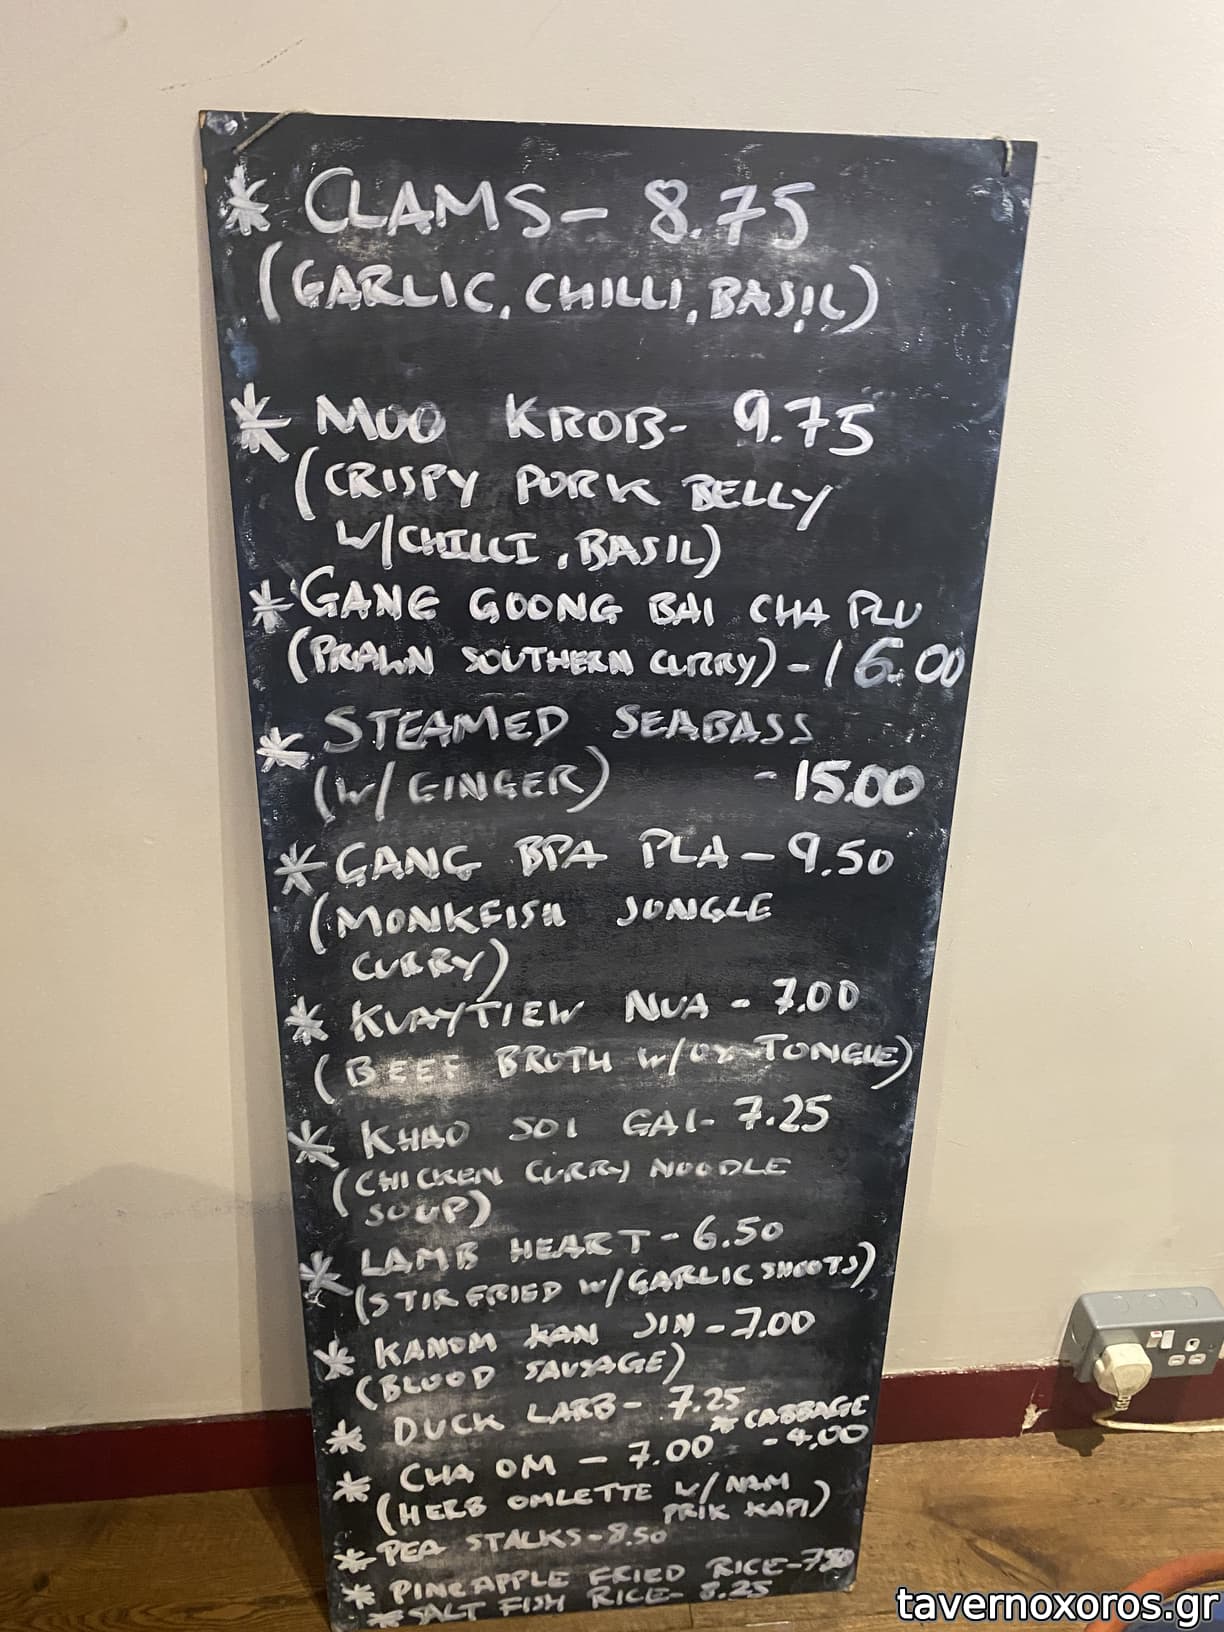 * CLAMS - 8.75
(GARLIC, CHILLI, BASIL)
* MOO KROB - 9.75
(CRISPY PORK BELLY
W/CHILLI, BASIL)
* GANG GOONG BAI CHA PLU
(PRAWN SOUTHERN CURRY) - 16.00
* STEAMED SEABASS
(W/ GINGER) - 15.00
* GANG BPA PLA - 9.50
(MONKFISH JUNGLE
CURRY)
* KUAYTIEW NUA - 7.00
(BEEF BROTH W/OX TONGUE)
* KHAO SOI GAI - 7.25
(CHICKEN CURRY NOODLE
SOUP)
* LAMB HEART - 6.50
(STIR FRIED W/GARLIC SHOOTS)
* KANOM KAN JIN - 7.00
(BLOOD SAUSAGE)
* DUCK LARB - 7.25
* CABBAGE
- 4.00
* CHA OM - 7.00
(HERB OMLETTE W/ NAM
PRIK KAPI)
* PEA STALKS - 8.50
* PINEAPPLE FRIED RICE - 7.50
* SALT FISH RICE - 8.25
tavernoxoros.gr